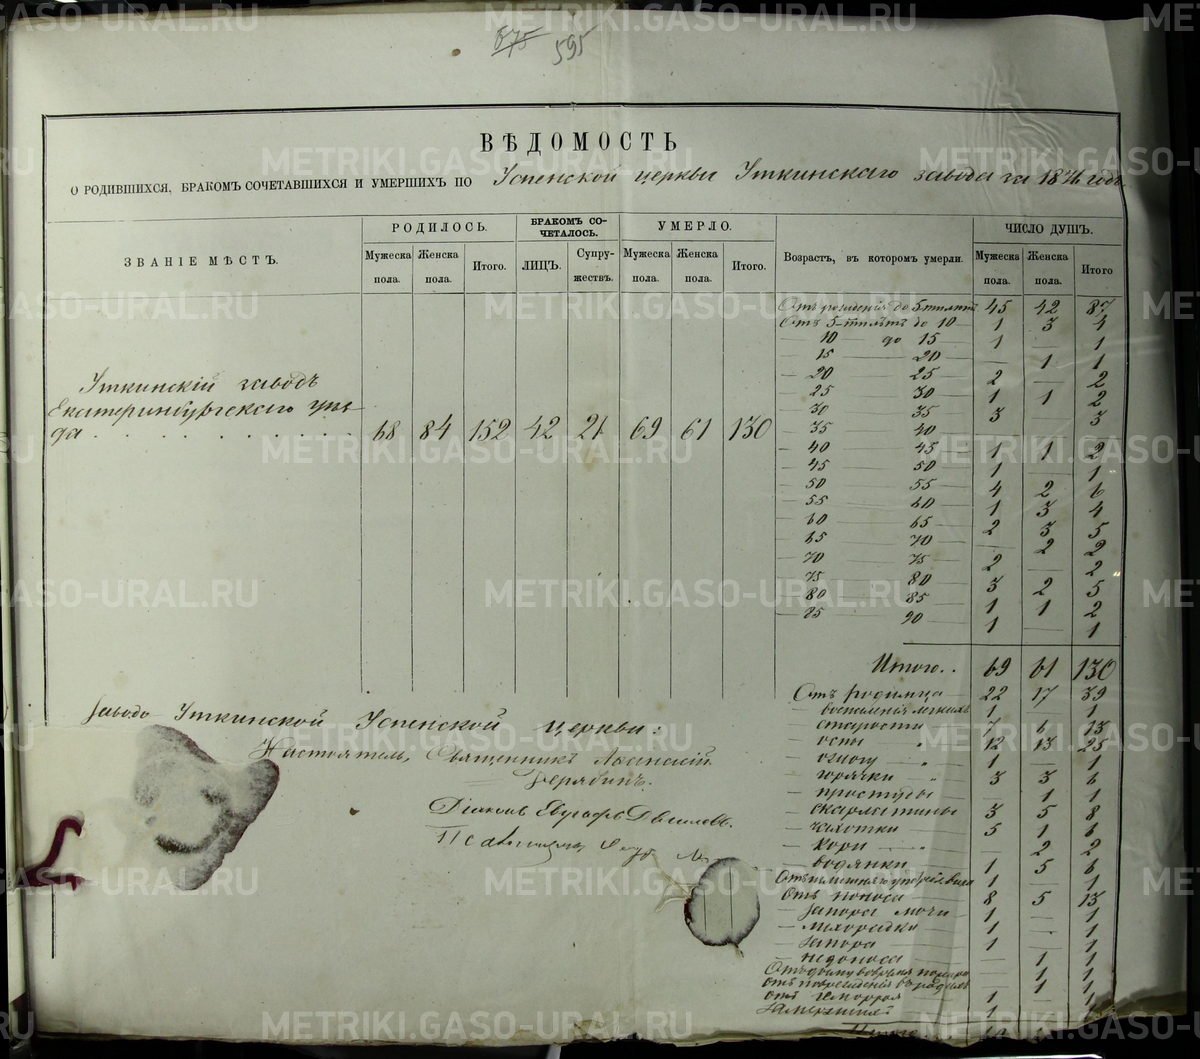 675 595
ВѢДОМОСТЬ
О РОДИВШИХСЯ, БРАКОМЪ СОЧЕТАВШИХСЯ И УМЕРШИХЪ ПО Успенской церкви Уткинскаго завода за 1876 годъ
ЗВАНІЕ МѢСТЪ.
РОДИЛОСЬ.
Мужеска пола. Женска пола. Итого.
БРАКОМЪ СО-
ЧЕТАЛОСЬ.
ЛИЦЪ. Супру-
жествъ.
УМЕРЛО.
Мужеска пола. Женска пола. Итого.
Возрастъ, въ которомъ умерли.
ЧИСЛО ДУШЪ.
Мужеска пола. Женска пола. Итого
Уткинскій заводъ
Екатеринбургскаго уѣз-
да . . . . . . . . . . . 68 84 152 42 21 69 61 130
Отъ рожденія до 5ти лѣтъ 45 42 87
Отъ 5ти лѣтъ до 10 1 3 4
— 10 — до 15 1 — 1
— 15 — 20 — 1 1
— 20 — 25 2 — 2
— 25 — 30 1 1 2
— 30 — 35 3 3
— 35 — 40
— 40 — 45 1 1 2
— 45 — 50 1 1
— 50 — 55 4 2 6
— 55 — 60 1 3 4
— 60 — 65 2 3 5
— 65 — 70 — 2 2
— 70 — 75 2 — 2
— 75 — 80 3 2 5
— 80 — 85 1 1 2
— 85 — 90 1 — 1
Итого.. 69 61 130
Отъ родимца 22 17 39
— воспаленія легкихъ 1 — 1
— старости 7 6 13
— оспы 12 13 25
— огнёу 1 — 1
— горячки 3 3 6
— простуды — 1 1
— скарлатины 3 5 8
— чахотки 5 1 6
— кори 2 2
— водянки 1 5 6
1 1
Отъ поноса 8 5 13
— запора мочи 1 — 1
— лихорадки 1 — 1
— запора 1 — 1
— недоноса — 1 1
— 1 1
— 1 1
отъ геморроя 1 1
1
Итого
Завода Уткинской Успенской церкви:
Настоятель, Священникъ Аѳанасій
Дерябинъ.
Діаконъ Евграфъ
Псаломщикъ
METRIKI.GASO-URAL.RU